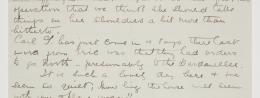 operation that we think she should take
things on her shoulders a bit more than
hitherto.
Carl T. has just come in & says their last
word from Eric was that they had orders
to go North — presumably to the Dardanelles.
It is such a lovely day here & we
seem so quiet, how long the house will seem